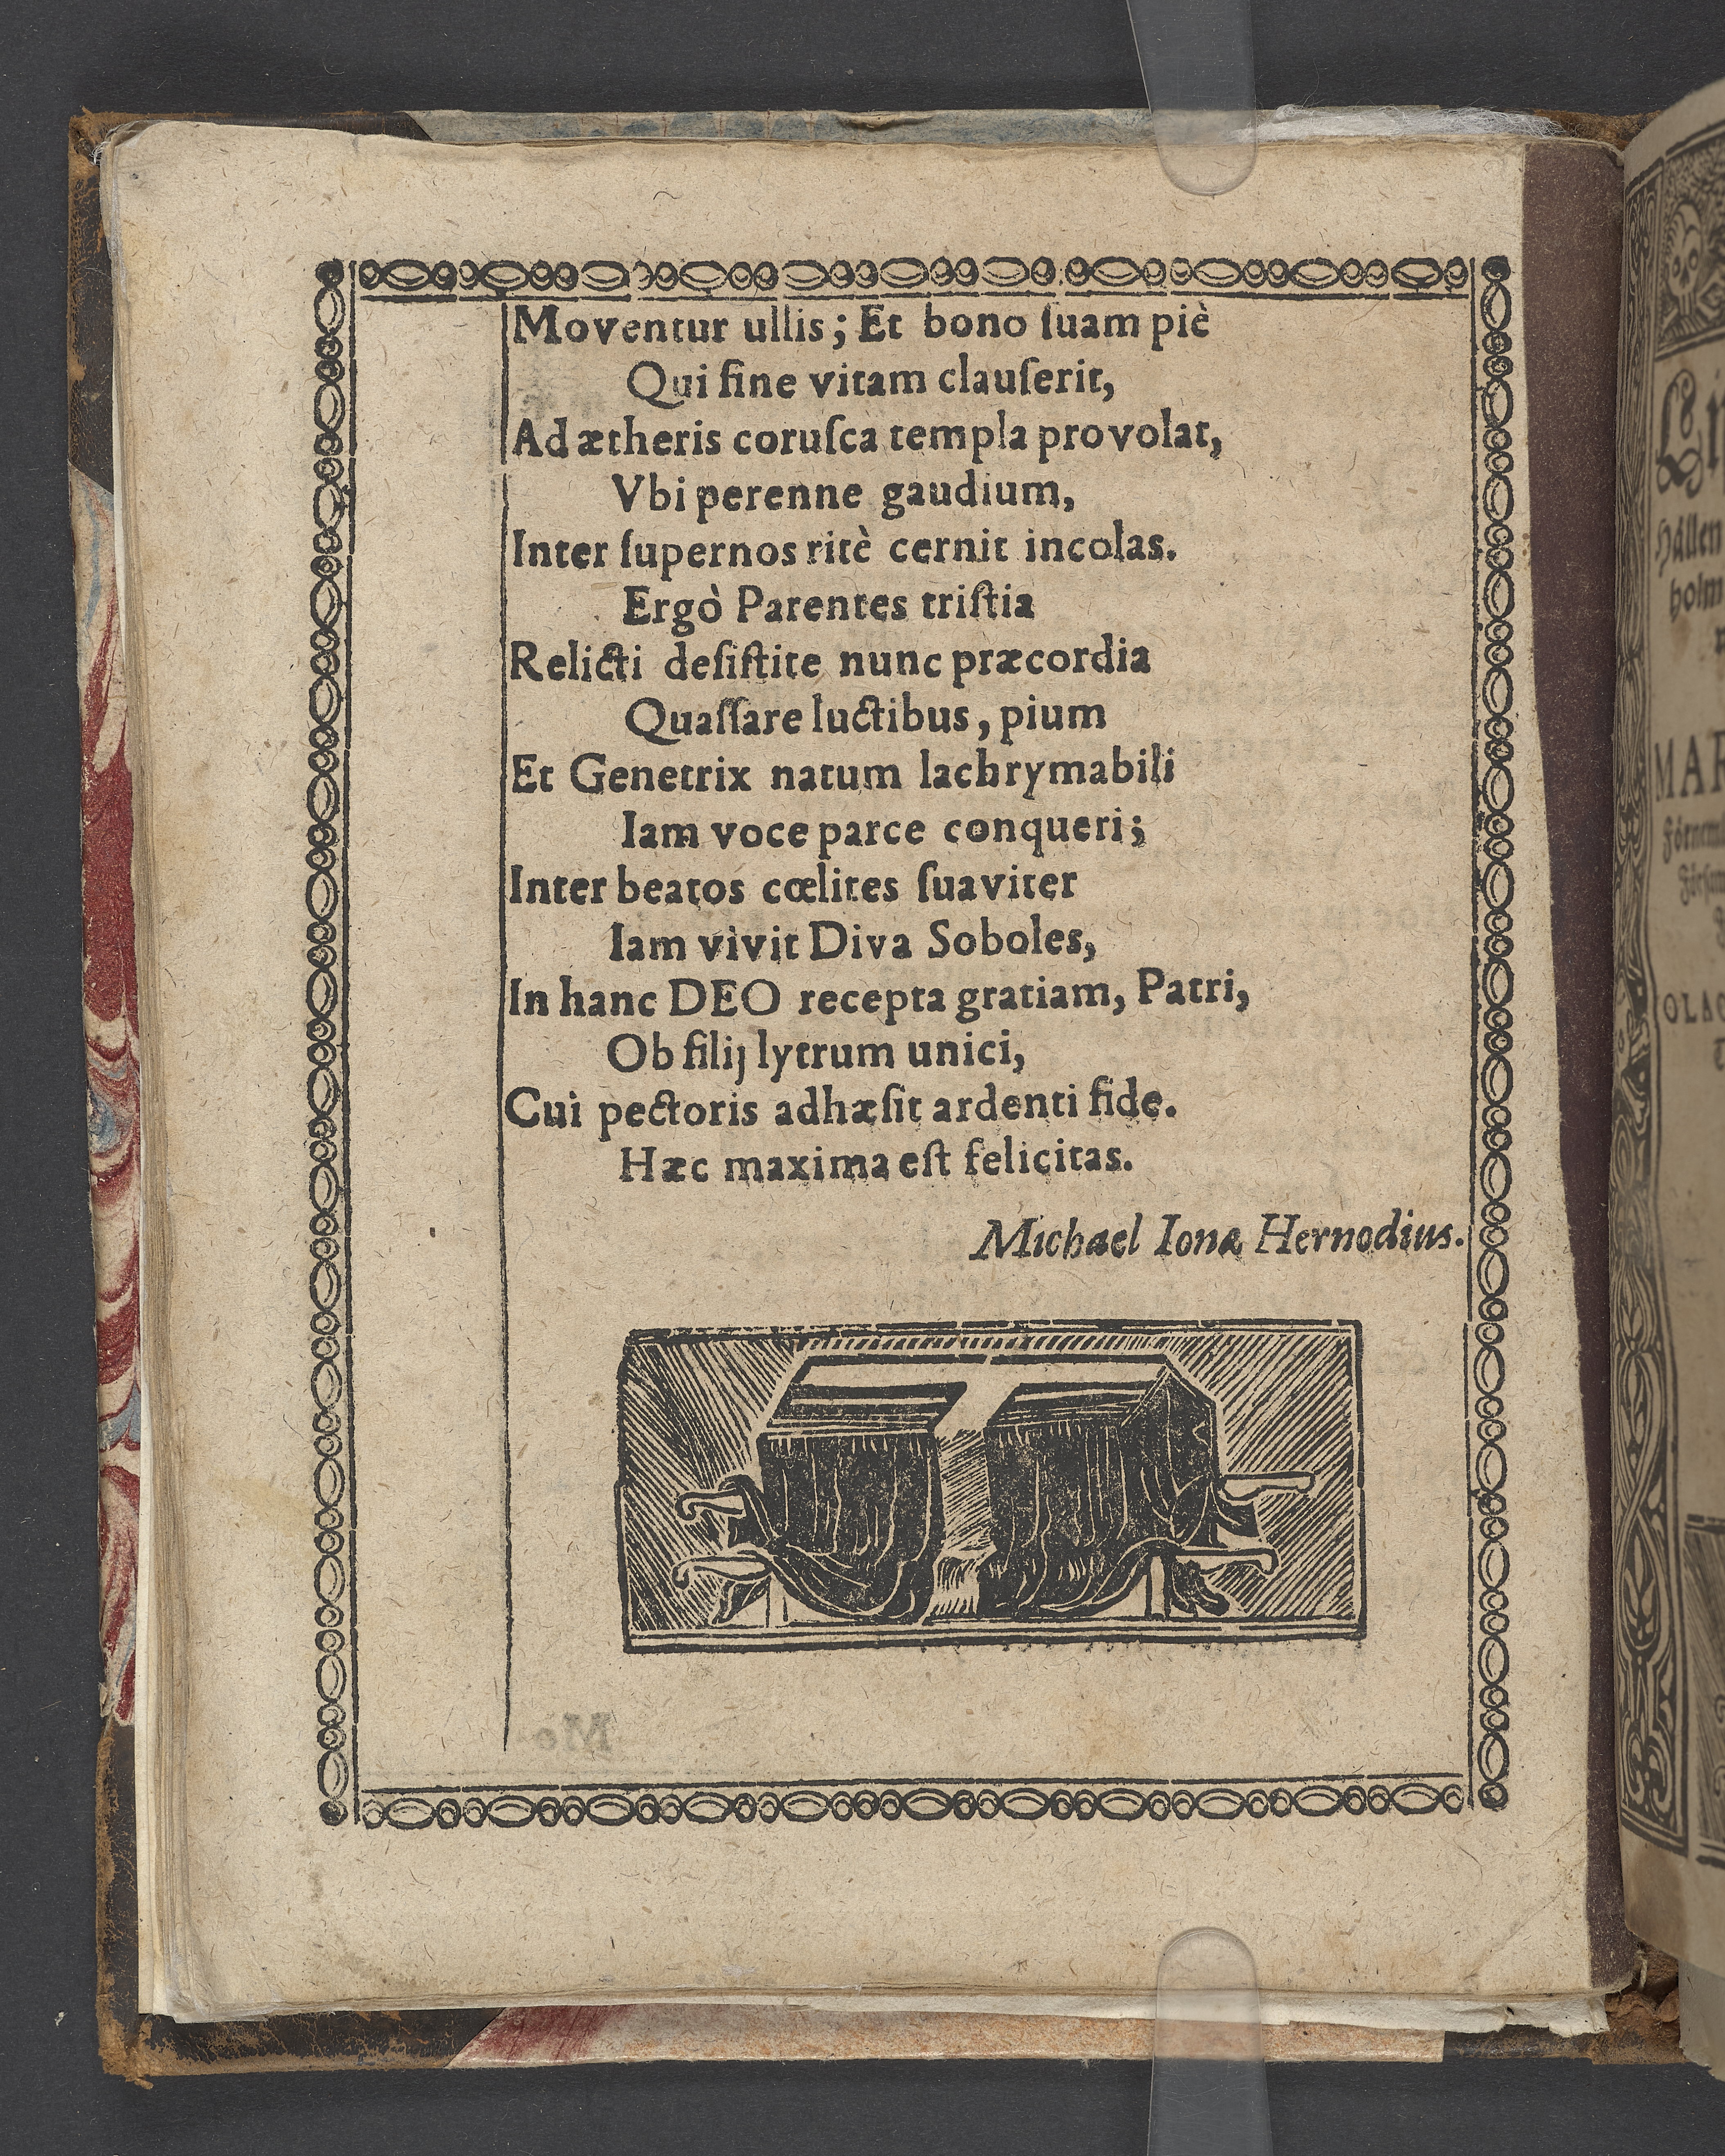 Moventur ullis; Et bono ſuam piè
Qui fine vitam clauſerit,
Ad ætheris coruſca templa provolat,
Vbi perenne gaudium,
Inter ſupernos ritè cernit incolas.
Ergò Parentes triſtia
Relicti deſiſtite nunc præcordia
Quaſſare luctibus, pium
Et Genetrix natum lachrymabili
Iam voce parce conqueri;
Inter beatos cœlites ſuaviter
Iam vivit Diva Soboles,
In hanc DEO recepta gratiam, Patri,
Ob filij lytrum unici,
Cui pectoris adhæſit ardenti fide.
Hæc maxima eſt felicitas.
Michael Ionæ Hernodius.
holm
MAR
OLAO